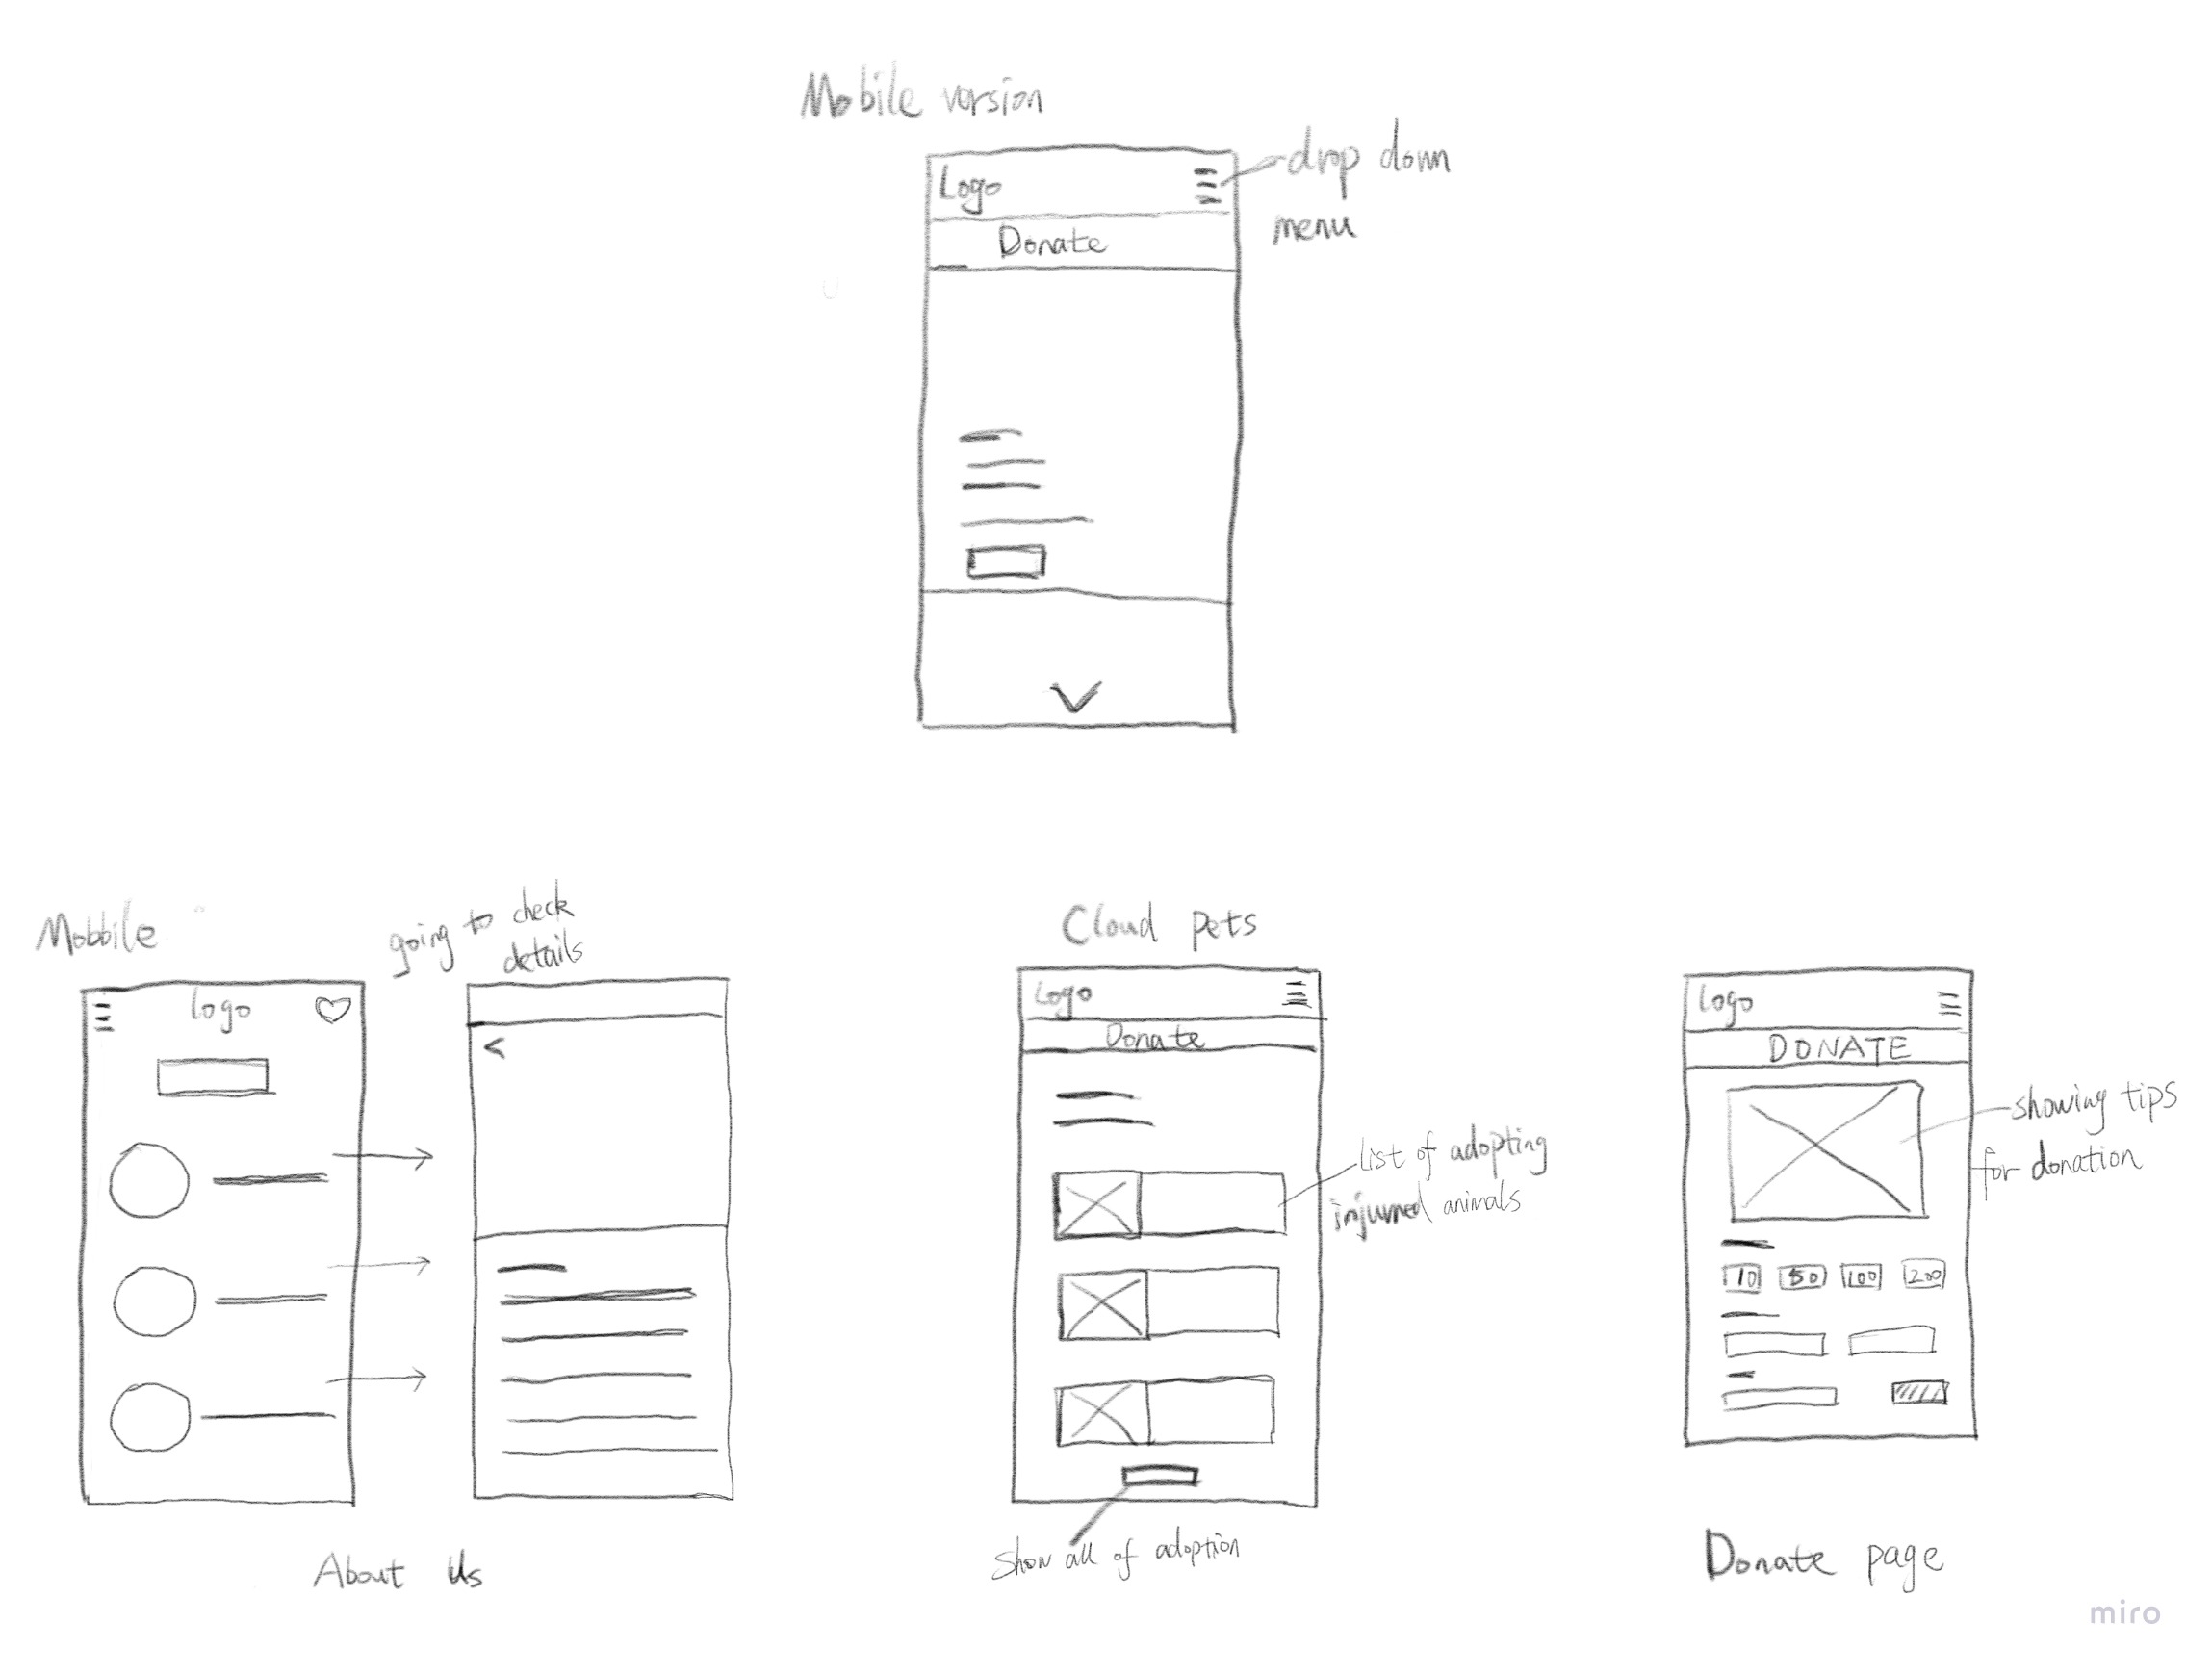 Mobile version
Logo
drop down
menu
Donate
Mobbile
going to check
details
logo
About Us
Cloud pets
Logo
Donate
List of adopting
injurned animals
Show all of adoption
logo
DONATE
showing tips
for donation
10 50 100 200
Donate page
miro